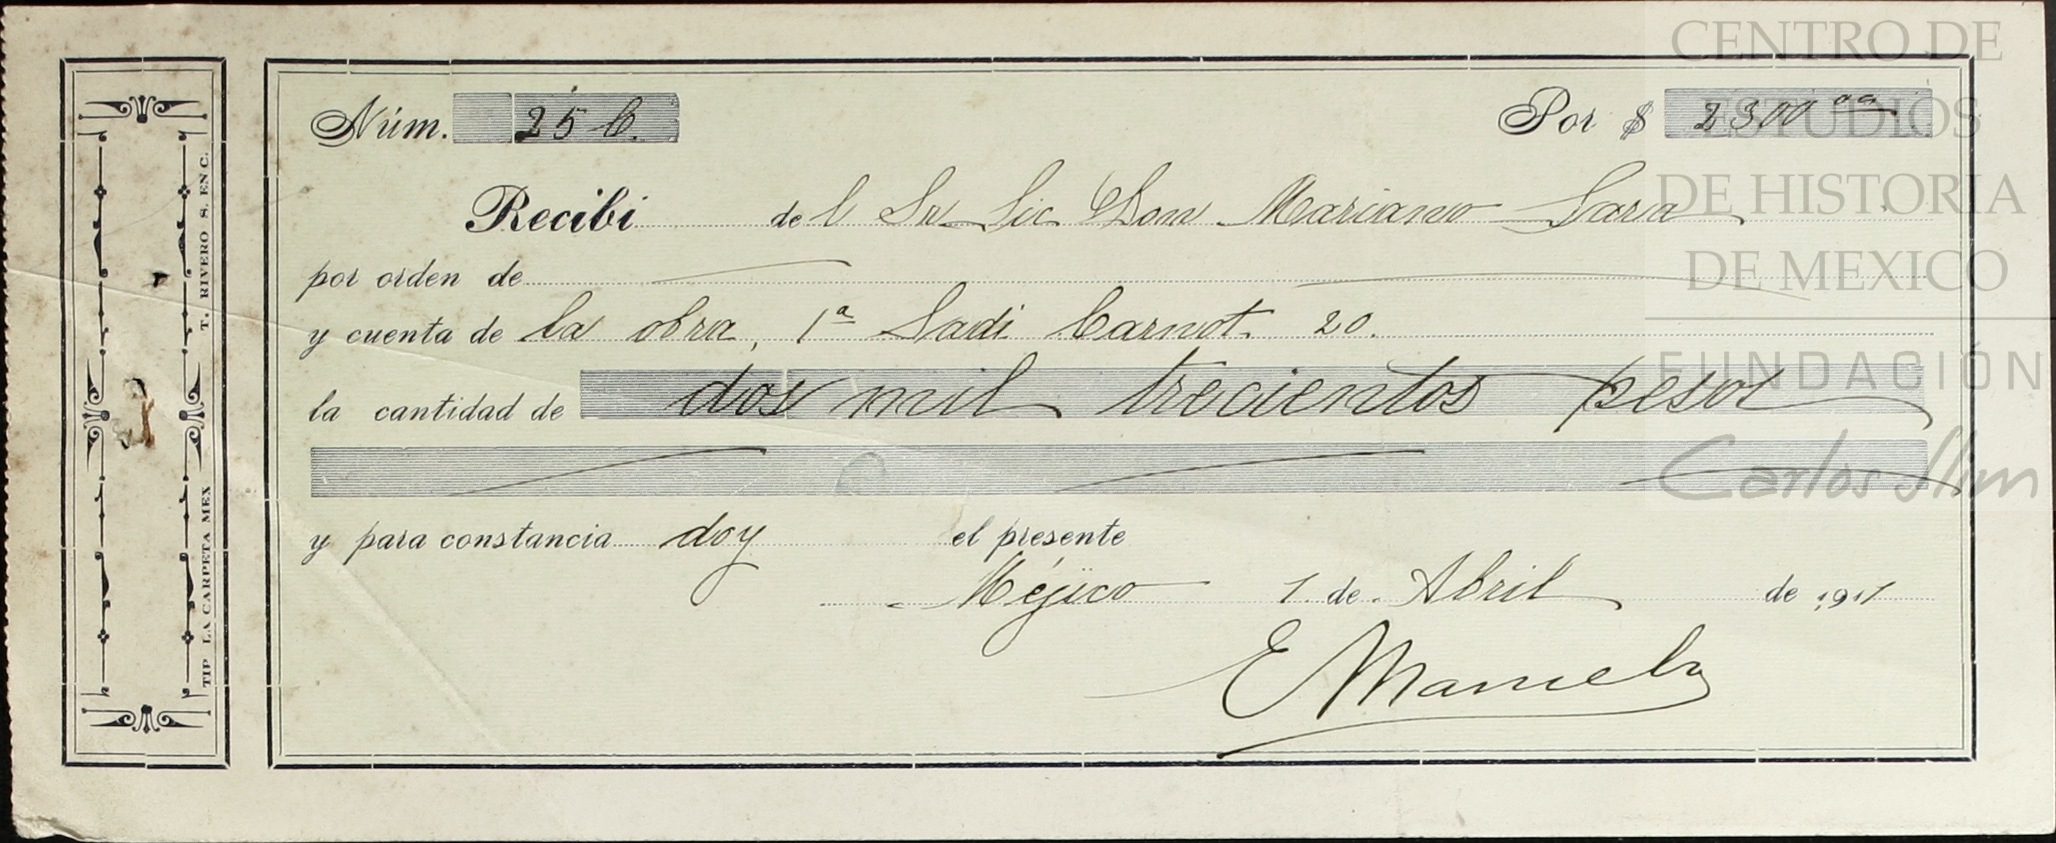 Núm. 25 C. Por $ 2300 oo
Recibí del Sr Lic Don Mariano Lara
por orden de
y cuenta de la obra, 1ª Sadi Carnot. 20.
la cantidad de dos mil trecientos pesos
y para constancia doy el presente
Méjico 1 de Abril de 1911
E Manuel
T. RIVERO S. EN C.
TIP LA CARPETA MEX
CENTRO DE
ESTUDIOS
DE HISTORIA
DE MEXICO
FUNDACIÓN
Carlos Slim